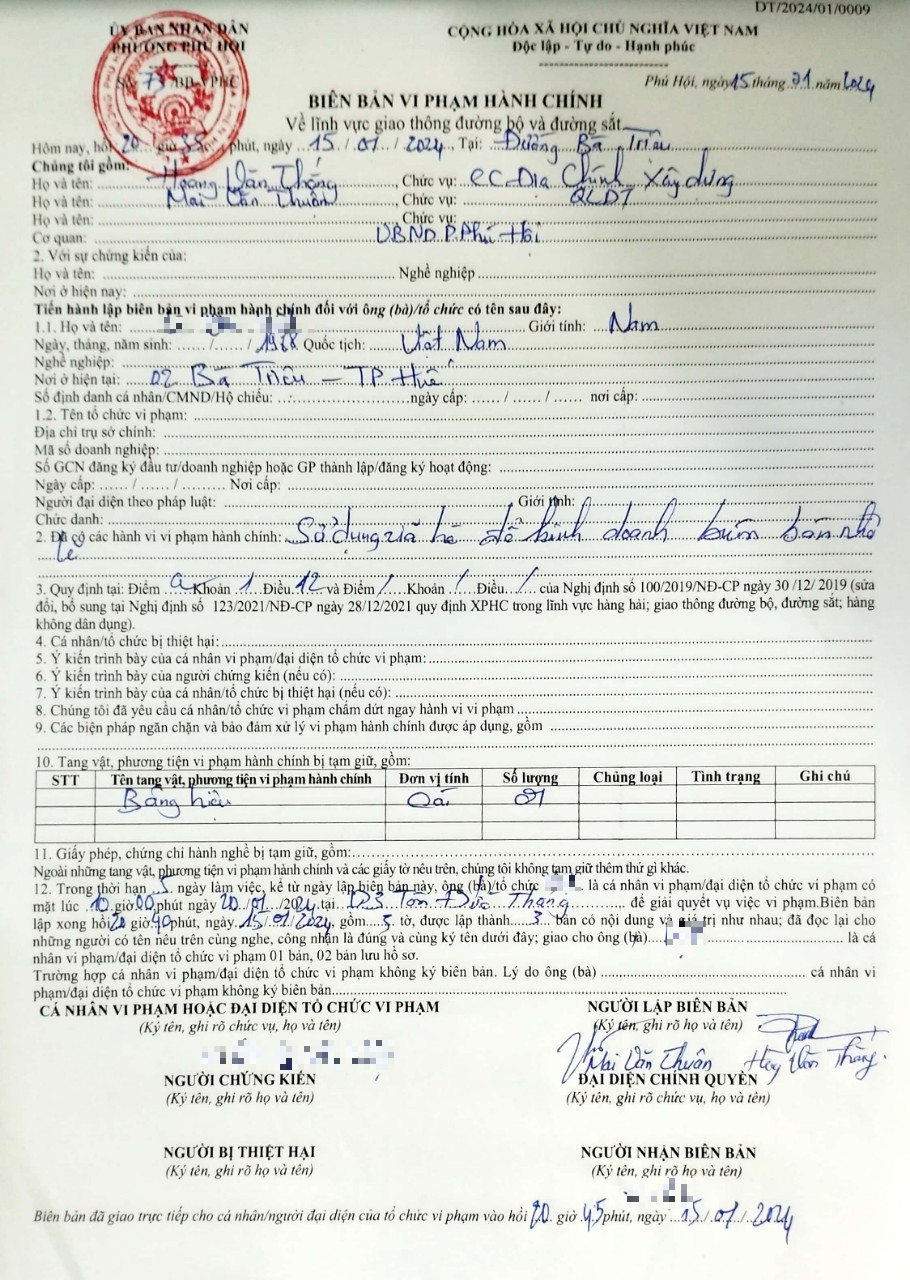 DT/2024/01/0009
ỦY BAN NHÂN DÂN
PHƯỜNG PHÚ HỘI
Số 73 /BB-VPHC
CỘNG HÒA XÃ HỘI CHỦ NGHĨA VIỆT NAM
Độc lập - Tự do - Hạnh phúc
Phú Hội, ngày 15 tháng 01 năm 2024
BIÊN BẢN VI PHẠM HÀNH CHÍNH
Về lĩnh vực giao thông đường bộ và đường sắt
Hôm nay, hồi 20 giờ 35 phút, ngày 15 / 01 / 2024 Tại: Đường Bà Triệu
Chúng tôi gồm:
Họ và tên: Hoàng Văn Thắng, Chức vụ: CC Địa Chính Xây dựng
Họ và tên: Mai Văn Thuân, Chức vụ: QLDT
Họ và tên: Chức vụ:
Cơ quan: UBND P. Phú Hội
2. Với sự chứng kiến của:
Họ và tên: Nghề nghiệp
Nơi ở hiện nay:
Tiến hành lập biên bản vi phạm hành chính đối với ông (bà)/tổ chức có tên sau đây:
1.1. Họ và tên: Giới tính: Nam
Ngày, tháng, năm sinh: ...... / ...... / Quốc tịch: Việt Nam
Nghề nghiệp:
Nơi ở hiện tại: 02 Bà Triệu - TP Huế
Số định danh cá nhân/CMND/Hộ chiếu: ngày cấp: ...... / ...... / ...... nơi cấp:
1.2. Tên tổ chức vi phạm:
Địa chỉ trụ sở chính:
Mã số doanh nghiệp:
Số GCN đăng ký đầu tư/doanh nghiệp hoặc GP thành lập/đăng ký hoạt động:
Ngày cấp: ...... / ...... / ...... Nơi cấp:
Người đại diện theo pháp luật: Giới tính:
Chức danh:
2. Đã có các hành vi vi phạm hành chính: Sử dụng vỉa hè để kinh doanh buôn bán nhỏ
lẻ
3. Quy định tại: Điểm a Khoản 1 Điều 12 và Điểm / Khoản / Điều / của Nghị định số 100/2019/NĐ-CP ngày 30 /12/ 2019 (sửa
đổi, bổ sung tại Nghị định số 123/2021/NĐ-CP ngày 28/12/2021 quy định XPHC trong lĩnh vực hàng hải; giao thông đường bộ, đường sắt; hàng
không dân dụng).
4. Cá nhân/tổ chức bị thiệt hại:
5. Ý kiến trình bày của cá nhân vi phạm/đại diện tổ chức vi phạm:
6. Ý kiến trình bày của người chứng kiến (nếu có):
7. Ý kiến trình bày của cá nhân/tổ chức bị thiệt hại (nếu có):
8. Chúng tôi đã yêu cầu cá nhân/tổ chức vi phạm chấm dứt ngay hành vi vi phạm
9. Các biện pháp ngăn chặn và bảo đảm xử lý vi phạm hành chính được áp dụng, gồm
10. Tang vật, phương tiện vi phạm hành chính bị tạm giữ, gồm:
STT Tên tang vật, phương tiện vi phạm hành chính Đơn vị tính Số lượng Chủng loại Tình trạng Ghi chú
Bảng hiệu Cái 01
11. Giấy phép, chứng chỉ hành nghề bị tạm giữ, gồm:
Ngoài những tang vật, phương tiện vi phạm hành chính và các giấy tờ nêu trên, chúng tôi không tạm giữ thêm thứ gì khác.
12. Trong thời hạn 5 ngày làm việc, kể từ ngày lập biên bản này, ông (bà)/tổ chức là cá nhân vi phạm/đại diện tổ chức vi phạm có
mặt lúc 10 giờ 00 phút ngày 20 / 01 / 2024 tại Tôn Đức Thắng để giải quyết vụ việc vi phạm.Biên bản
lập xong hồi 20 giờ 40 phút, ngày 15 / 01 / 2024, gồm tờ, được lập thành 3 bản có nội dung và giá trị như nhau; đã đọc lại cho
những người có tên nêu trên cùng nghe, công nhận là đúng và cùng ký tên dưới đây; giao cho ông (bà) là cá
nhân vi phạm/đại diện tổ chức vi phạm 01 bản, 02 bản lưu hồ sơ.
Trường hợp cá nhân vi phạm/đại diện tổ chức vi phạm không ký biên bản. Lý do ông (bà) cá nhân vi
phạm/đại diện tổ chức vi phạm không ký biên bản.
CÁ NHÂN VI PHẠM HOẶC ĐẠI DIỆN TỔ CHỨC VI PHẠM
(Ký tên, ghi rõ chức vụ, họ và tên)
NGƯỜI LẬP BIÊN BẢN
(Ký tên, ghi rõ họ và tên)
Mai Văn Thuân Hoàng Văn Thắng
NGƯỜI CHỨNG KIẾN
(Ký tên, ghi rõ họ và tên)
ĐẠI DIỆN CHÍNH QUYỀN
(Ký tên, ghi rõ chức vụ, họ và tên)
NGƯỜI BỊ THIỆT HẠI
(Ký tên, ghi rõ họ và tên)
NGƯỜI NHẬN BIÊN BẢN
(Ký tên, ghi rõ họ và tên)
Biên bản đã giao trực tiếp cho cá nhân/người đại diện của tổ chức vi phạm vào hồi 20 giờ 45 phút, ngày 15 / 01 / 2024